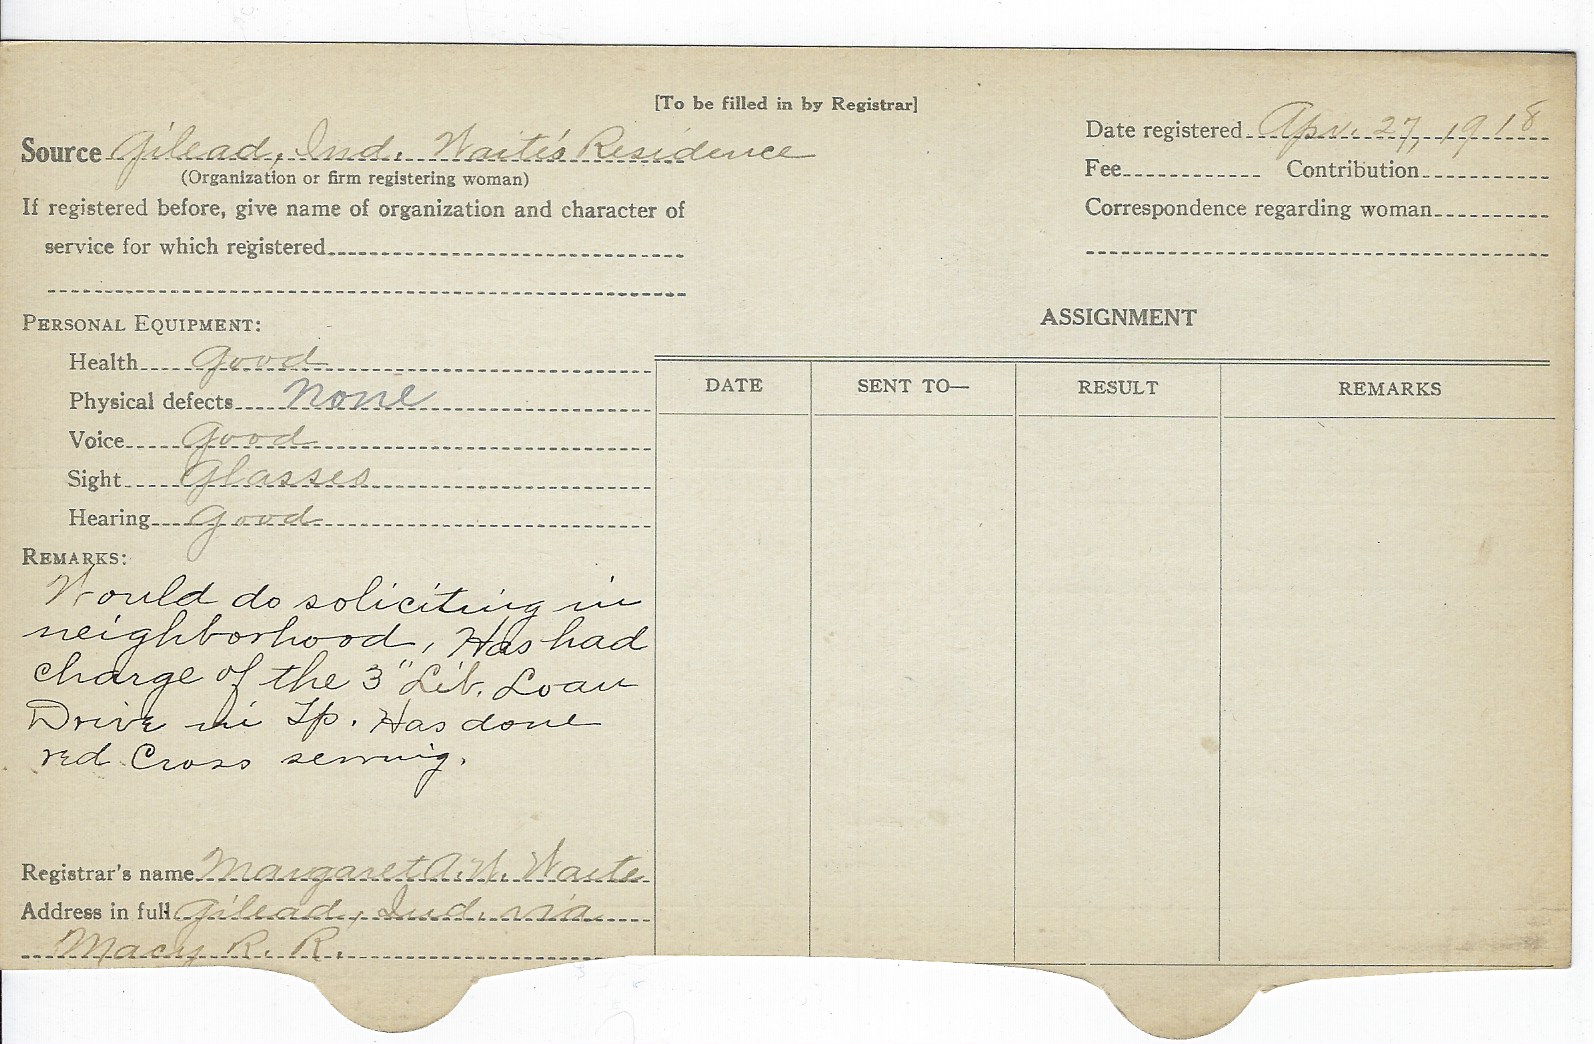 [To be filled in by Registrar]
Source Gilead, Ind. Waite's Residence
(Organization or firm registering woman)
If registered before, give name of organization and character of
service for which registered
Date registered Apr. 27, 1918
Fee Contribution
Correspondence regarding woman
PERSONAL EQUIPMENT:
Health Good
Physical defects None
Voice Good
Sight Glasses
Hearing Good
REMARKS:
Would do soliciting in
neighborhood, Has had
charge of the 3" Lib. Loan
Drive in Tp. Has done
red Cross sewing.
Registrar's name Margaret A. W. Waite
Address in full Gilead, Ind. via
Macy R. R.
ASSIGNMENT
DATE SENT TO— RESULT REMARKS